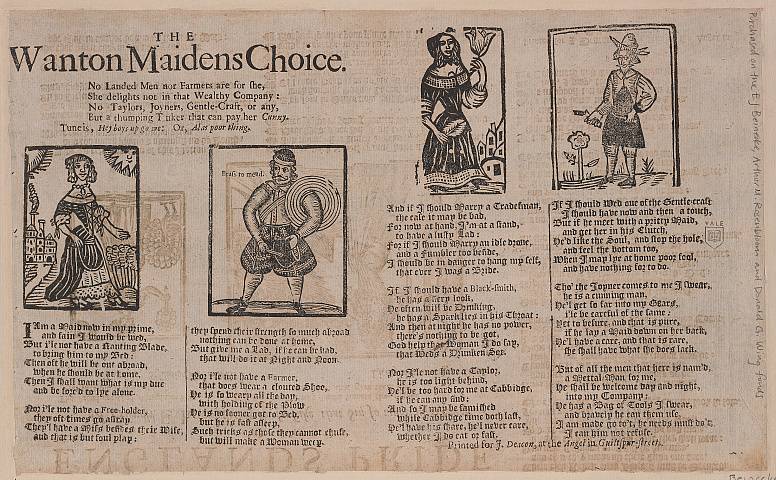 THE
Wanton Maidens Choice.
No Landed Men nor Farmers are for she,
She delights not in that Wealthy Company:
No Taylors, Joyners, Gentle-Craft, or any,
But a thumping Tinker that can pay her Cunny.
Tune is, Hey boys up go we: Or, Alas poor thing.
Brass to mend.
I Am a Maid now in my prime,
and fain I would be wed,
But i'le not have a Ranting Blade,
to bring him to my Bed:
Then if he will be out abroad,
when he should be at home,
Then I shall want what is my due
and be forc'd to lye alone.
Nor i'le not have a Free-holder,
they oft-times go astray,
They'l have a Miss besides their Wife,
and that is but foul play:
they spend their strength so much abroad
nothing can be done at home,
But give me a Lad, if he can be had,
that will do it at Night and Noon.
Nor i'le not have a Farmer,
that does wear a clouted Shooe,
He is so weary all the day,
with holding of the Plow
He is no sooner got to Bed,
but he is fast asleep,
Such tricks as those they cannot chuse,
but will make a Woman weep.
And if I should Marry a Tradesman,
the case it may be bad,
For now at hand, I'm at a stand,
to have a lusty Lad:
For if I should Marry an idle drone,
and a Fumbler too beside,
I should be in danger to hang my self,
that ever I was a Bride.
If I should have a Black-smith,
he has a fiery look,
He often will be Drinking,
he has a Spark lies in his Throat:
And then at night he has no power,
there's nothing to be got,
God help that Woman I do say,
that Weds a Drunken Sot.
Nor i'le not have a Taylor,
he is too light behind,
He'l be too hard for me at Cabbidge,
if he can any find:
And so I may be famished
while Cabbidge time doth last,
He'l have his share, he'l never care,
whether I do eat or fast.
If I should Wed one of the Gentle-craft
I should have now and then a touch,
But if he meet with a pritty Maid,
and get her in his Clutch,
He'd like the Soul, and stop the hole,
and feel the bottom too,
When I may lye at home poor fool,
and have nothing for to do.
Tho' the Joyner comes to me I swear,
he is a cunning man,
He'l get so far into my Gears,
i'le be careful of the same:
Yet to besure, and that is pure,
if he lay a Maid down on her back,
He'l have a care, and that is rare,
she shall have what she does lack.
But of all the men that here is nam'd,
a Mettal-Man for me,
He shall be welcome day and night,
into my Company:
He has a Bag of Tools I swear,
and bravely he can them use,
I am made go to't, he needs must do't,
I can him not refuse.
Printed for J. Deacon, at the Angel in Guiltspur-street.
YALE
Purchased on the E.J. Beinecke, Arthur H. Rosenbloom and Donald G. Wing funds